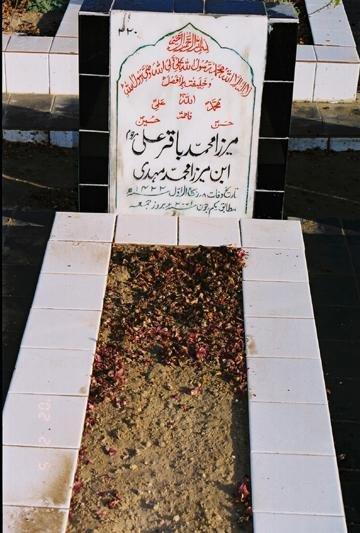 بسم الله الرحمن الرحيم
لا اله الا الله محمد رسول الله علی ولی الله وصی رسول الله
وخلیفتہ بلا فصل
محمد اللہ علی
فاطمہ
حسن حسین
میرزا محمد باقر علی
ابن میرزا محمد مہدی
تاریخ وفات ۸ ربیع الاول ۱۴۲۲ھ
مطابق یکم جون ۲۰۰۱ بروز جمعہ